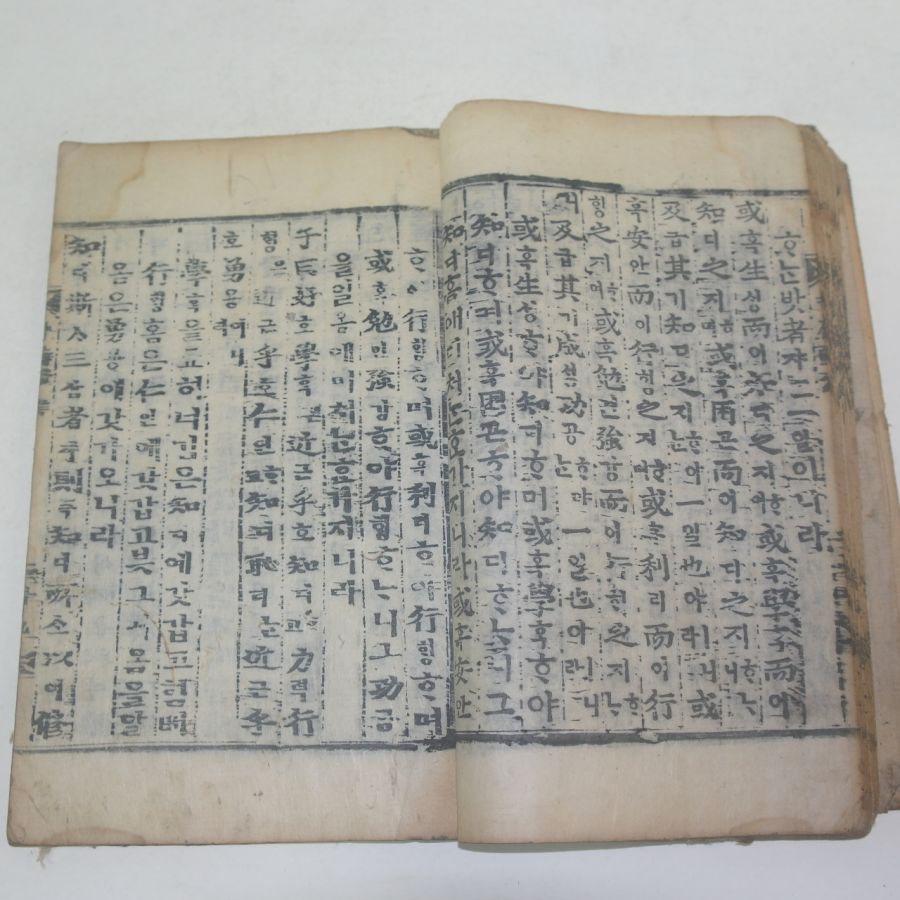 ᄒᆞᄂᆞᆫ밧者쟈ᄂᆞᆫ一일이니라
或혹生ᄉᆡᆼ而이知디之지ᄒᆞ며或혹學ᄒᆞᆨ而이
知디之지ᄒᆞ며或혹困곤而이知디之지ᄒᆞᄂᆞ니
及급其기知디之지ᄒᆞ야ᄂᆞᆫ一일也야ㅣ니라或
혹安안而이行ᄒᆡᆼ之지ᄒᆞ며或혹利리而이行
ᄒᆡᆼ之지ᄒᆞ며或혹勉면强강而이行ᄒᆡᆼ之지ᄒᆞᄂᆞ
니及급其기成셩功공ᄒᆞ야ᄂᆞᆫ一일也야ㅣ니라
或혹生ᄉᆡᆼᄒᆞ야知디ᄒᆞ며或혹學ᄒᆞᆨᄒᆞ야
知디ᄒᆞ며或혹困곤ᄒᆞ야知디ᄒᆞᄂᆞ니그
知디홈애미처ᄂᆞᆫᄒᆞᆫ가지니라或혹安안
ᄒᆞ야行ᄒᆡᆼᄒᆞ며或혹利리ᄒᆞ야行ᄒᆡᆼᄒᆞ며
或혹勉면强강ᄒᆞ야行ᄒᆡᆼᄒᆞᄂᆞ니그功공
을일옴애미처ᄂᆞᆫᄒᆞᆫ가지니라
子ᄌᆞㅣ曰왈好호學ᄒᆞᆨ은近근乎호知디ᄒᆞ고力력行
ᄒᆡᆼ은近근乎호仁인ᄒᆞ고知디恥티ᄂᆞᆫ近근乎
호勇용이니라
學ᄒᆞᆨ을됴히너김은知디예갓갑고힘ᄡᅥ
行ᄒᆡᆼ홈은仁인에갓갑고붓그러옴을알
옴은勇용애갓가오니라
知디斯ᄉᆞ三삼者쟈則즉知디所소以이修